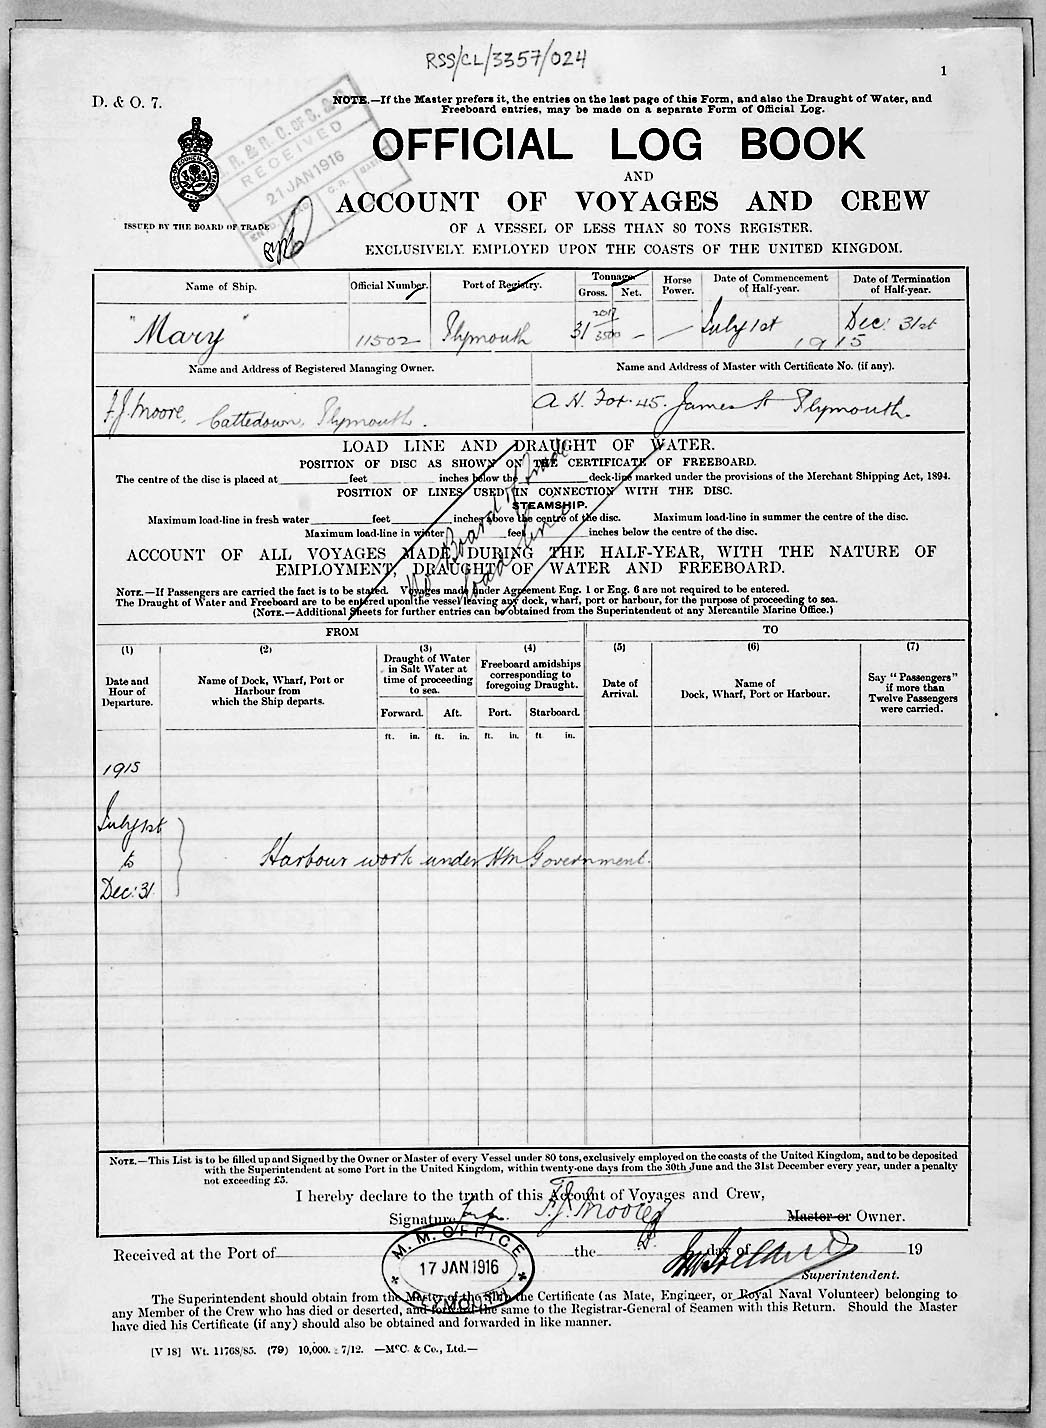 RSS/CL/3357/024
1
D. & O. 7.
NOTE.—If the Master prefers it, the entries on the last page of this Form, and also the Draught of Water, and
Freeboard entries, may be made on a separate Form of Official Log.
RECEIVED
21 JAN 1916
OFFICIAL LOG BOOK
AND
ACCOUNT OF VOYAGES AND CREW
ISSUED BY THE BOARD OF TRADE
OF A VESSEL OF LESS THAN 80 TONS REGISTER.
EXCLUSIVELY EMPLOYED UPON THE COASTS OF THE UNITED KINGDOM.
Name of Ship.
Official Number.
Port of Registry.
Tonnage.
Gross. Net.
Horse
Power.
Date of Commencement
of Half-year.
Date of Termination
of Half-year.
"Mary"
11502
Plymouth
31
July 1st
Dec: 31st
1915
Name and Address of Registered Managing Owner.
Name and Address of Master with Certificate No. (if any).
F.J. Moore, Cattedown, Plymouth.
A H. Fox. 45. James St Plymouth.
LOAD LINE AND DRAUGHT OF WATER.
POSITION OF DISC AS SHOWN ON THE CERTIFICATE OF FREEBOARD.
The centre of the disc is placed at feet inches below the deck-line marked under the provisions of the Merchant Shipping Act, 1894.
POSITION OF LINES USED IN CONNECTION WITH THE DISC.
STEAMSHIP.
Maximum load-line in fresh water feet inches above the centre of the disc. Maximum load-line in summer the centre of the disc.
Maximum load-line in winter feet inches below the centre of the disc.
No Board of Trade
load line
ACCOUNT OF ALL VOYAGES MADE DURING THE HALF-YEAR, WITH THE NATURE OF
EMPLOYMENT, DRAUGHT OF WATER AND FREEBOARD.
NOTE.—If Passengers are carried the fact is to be stated. Voyages made under Agreement Eng. 1 or Eng. 6 are not required to be entered.
The Draught of Water and Freeboard are to be entered upon the vessel leaving any dock, wharf, port or harbour, for the purpose of proceeding to sea.
(NOTE.—Additional Sheets for further entries can be obtained from the Superintendent of any Mercantile Marine Office.)
FROM
TO
(1)
Date and
Hour of
Departure.
(2)
Name of Dock, Wharf, Port or
Harbour from
which the Ship departs.
(3)
Draught of Water
in Salt Water at
time of proceeding
to sea.
Forward. Aft.
(4)
Freeboard amidships
corresponding to
foregoing Draught.
Port. Starboard.
(5)
Date of
Arrival.
(6)
Name of
Dock, Wharf, Port or Harbour.
(7)
Say "Passengers"
if more than
Twelve Passengers
were carried.
ft. in. ft. in. ft. in. ft in.
1915
July 1st
to
Dec: 31
Harbour work under H.M. Government.
NOTE.—This List is to be filled up and Signed by the Owner or Master of every Vessel under 80 tons, exclusively employed on the coasts of the United Kingdom, and to be deposited
with the Superintendent at some Port in the United Kingdom, within twenty-one days from the 30th June and the 31st December every year, under a penalty
not exceeding £5.
I hereby declare to the truth of this Account of Voyages and Crew,
Signature F.J. Moore Master or Owner.
Received at the Port of the day of 19
Superintendent.
M. M. OFFICE
17 JAN 1916
PLYMOUTH
The Superintendent should obtain from the Master of the Ship the Certificate (as Mate, Engineer, or Royal Naval Volunteer) belonging to
any Member of the Crew who has died or deserted, and forward the same to the Registrar-General of Seamen with this Return. Should the Master
have died his Certificate (if any) should also be obtained and forwarded in like manner.
[V 18] Wt. 11768/85. (79) 10,000. 7/12. —McC. & Co., Ltd.—